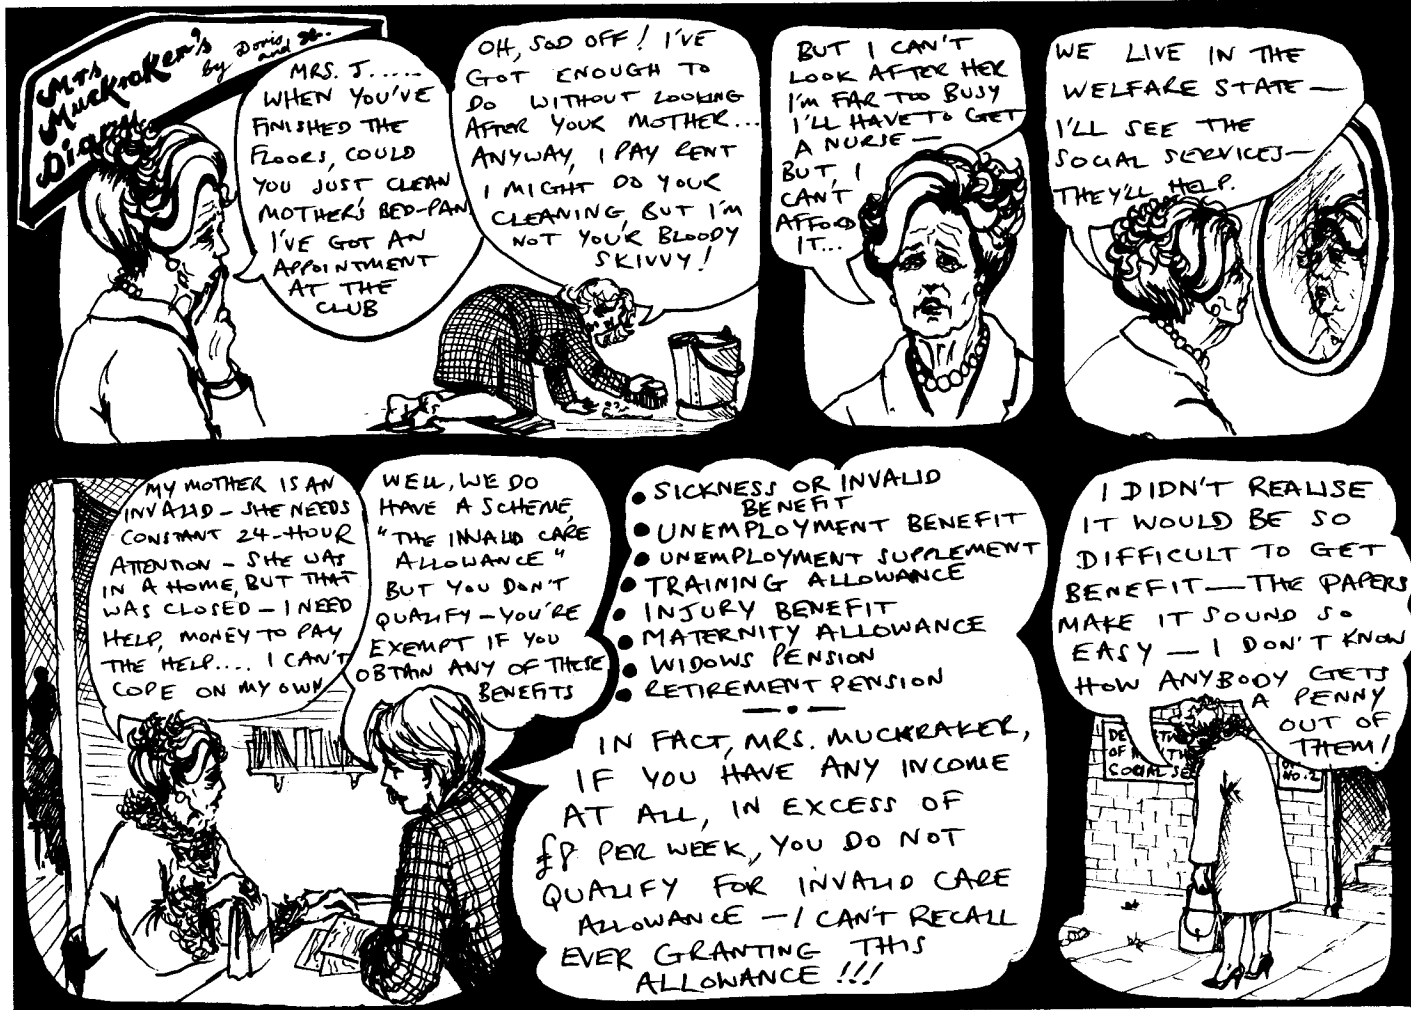 Mrs
Muckraker's
Diary
by Doris
and
MRS. J.....
WHEN YOU'VE
FINISHED THE
FLOORS, COULD
YOU JUST CLEAN
MOTHER'S BED-PAN
I'VE GOT AN
APPOINTMENT
AT THE
CLUB
OH, SOD OFF! I'VE
GOT ENOUGH TO
DO WITHOUT LOOKING
AFTER YOUR MOTHER...
ANYWAY, I PAY RENT
I MIGHT DO YOUR
CLEANING, BUT I'M
NOT YOUR BLOODY
SKIVVY!
BUT I CAN'T
LOOK AFTER HER
I'M FAR TOO BUSY
I'LL HAVE TO GET
A NURSE —
BUT, I
CAN'T
AFFORD
IT...
WE LIVE IN THE
WELFARE STATE —
I'LL SEE THE
SOCIAL SERVICES —
THEY'LL HELP.
MY MOTHER IS AN
INVALID – SHE NEEDS
CONSTANT 24-HOUR
ATTENTION – SHE WAS
IN A HOME, BUT THAT
WAS CLOSED – I NEED
HELP, MONEY TO PAY
THE HELP.... I CAN'T
COPE ON MY OWN
WELL, WE DO
HAVE A SCHEME,
"THE INVALID CARE
ALLOWANCE"
BUT YOU DON'T
QUALIFY – YOU'RE
EXEMPT IF YOU
OBTAIN ANY OF THESE
BENEFITS
• SICKNESS OR INVALID
BENEFIT
• UNEMPLOYMENT BENEFIT
• UNEMPLOYMENT SUPPLEMENT
• TRAINING ALLOWANCE
• INJURY BENEFIT
• MATERNITY ALLOWANCE
• WIDOWS PENSION
• RETIREMENT PENSION
IN FACT, MRS. MUCKRAKER,
IF YOU HAVE ANY INCOME
AT ALL, IN EXCESS OF
PER WEEK, YOU DO NOT
QUALIFY FOR INVALID CARE
ALLOWANCE – I CAN'T RECALL
EVER GRANTING THIS
ALLOWANCE!!!
I DIDN'T REALISE
IT WOULD BE SO
DIFFICULT TO GET
BENEFIT — THE PAPERS
MAKE IT SOUND SO
EASY — I DON'T KNOW
HOW ANYBODY GETS
A PENNY
OUT OF
THEM!
OF
NO.2